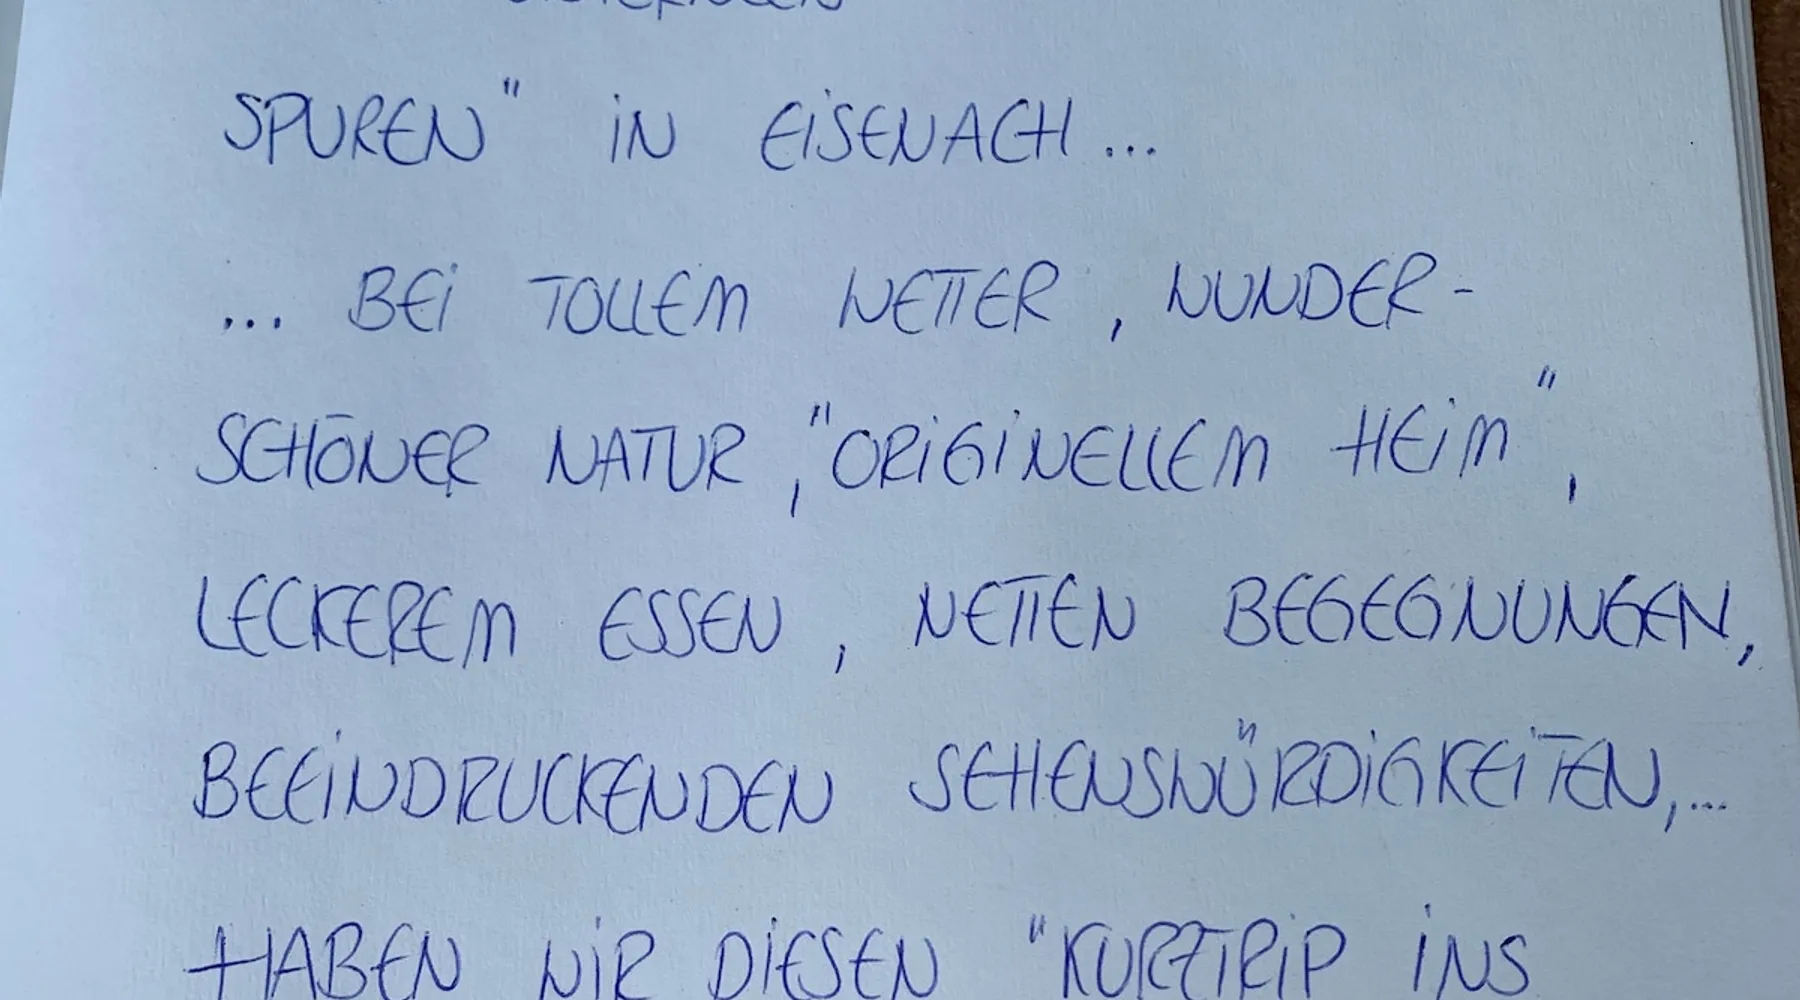 SPUREN" IN EISENACH ...
... BEI TOLLEM WETTER, WUNDER-
SCHÖNER NATUR, "ORIGINELLEM HEIM",
LECKEREM ESSEN, NETTEN BEGEGNUNGEN,
BEEINDRUCKENDEN SEHENSWÜRDIGKEITEN,...
HABEN WIR DIESEN "KURZTRIP INS